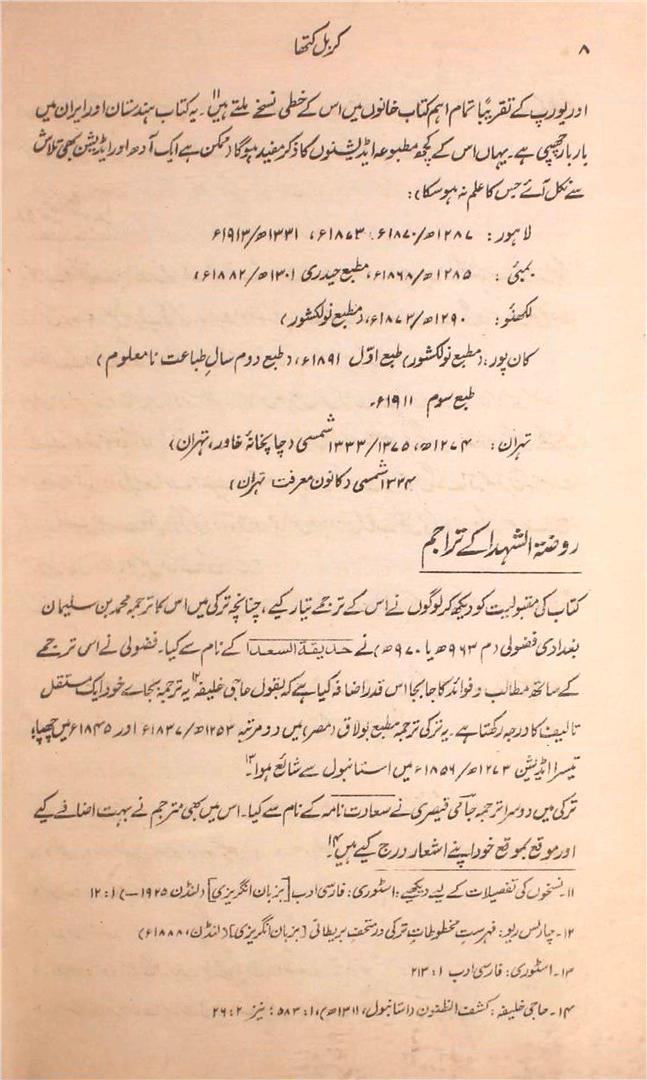 ۸
کربل کتھا
اور یورپ کے تقریباً تمام اہم کتاب خانوں میں اس کے خطی نسخے ملتے ہیں۱۱۔ یہ کتاب ہندستان اور ایران میں
بار بار چھپی ہے۔ یہاں اس کے کچھ مطبوعہ ایڈیشنوں کا ذکر مفید ہوگا (ممکن ہے ایک آدھ اور ایڈیشن بھی تلاش
سے نکل آئے جس کا علم نہ ہو سکا):
لاہور: ۱۲۸۷ھ/۱۸۷۰ء؛ ۱۸۷۳ء، ۱۳۳۱ھ/۱۹۱۳ء
بمبئی: ۱۲۸۵ھ/۱۸۶۸ء، مطبع حیدری (۱۳۰۱ھ/۱۸۸۲ء)
لکھنؤ: ۱۲۹۰ھ/۱۸۷۳ء، (مطبع نولکشور)
کان پور، (مطبع نولکشور) طبع اوّل ۱۸۹۱ء، (طبع دوم سالِ طباعت نامعلوم)
طبع سوم ۱۹۱۱ء۔
تہران: ۱۲۷۴ھ، ۱۳۷۵/۱۳۳۳ شمسی (چاپخانۂ خاور، تہران)
۱۳۳۴ شمسی (کانون معرفت تہران)
روضۃ الشہدا کے تراجم
کتاب کی مقبولیت کو دیکھ کر لوگوں نے اس کے ترجمے تیار کیے، چنانچہ ترکی میں اس کا ترجمہ محمد بن سلیمان
بغدادی فضولی (م ۹۶۳ھ یا ۹۷۰ھ) نے حدیقۃ السعدا کے نام سے کیا۔ فضولی نے اس ترجمے
کے ساتھ مطالب و فوائد کا جابجا اس قدر اضافہ کیا ہے کہ بقول حاجی خلیفہ۱۲ یہ ترجمہ بجائے خود ایک مستقل
تالیف کا درجہ رکھتا ہے۔ یہ ترکی ترجمہ مطبع بولاق (مصر) میں دو مرتبہ ۱۲۵۳ھ/۱۸۳۷ء اور ۱۸۴۵ء میں چھپا؛
تیسرا ایڈیشن ۱۲۷۳ھ/۱۸۵۶ء میں استانبول سے شائع ہوا۔۱۳
ترکی میں دوسرا ترجمہ جامی قیصری نے سعادت نامہ کے نام سے کیا۔ اس میں بھی مترجم نے بہت اضافے کیے
اور موقع بموقع خود اپنے اشعار درج کیے ہیں۱۴۔
۱۱۔ نسخوں کی تفصیلات کے لیے دیکھیے: اسٹوری: فارسی ادب [بزبان انگریزی] (لنڈن ۱۹۲۵–) ۱: ۱۲
۱۲۔ چارلس ریو: فہرست مخطوطات ترکی در متحف بریطانی [بزبان انگریزی] (لنڈن، ۱۸۸۸ء)
۱۳۔ اسٹوری: فارسی ادب ۱: ۲۱۳
۱۴۔ حاجی خلیفہ: کشف الظنون (استانبول، ۱۳۱۱ھ)، ۱: ۵۸۳؛ نیز ۲: ۲۶